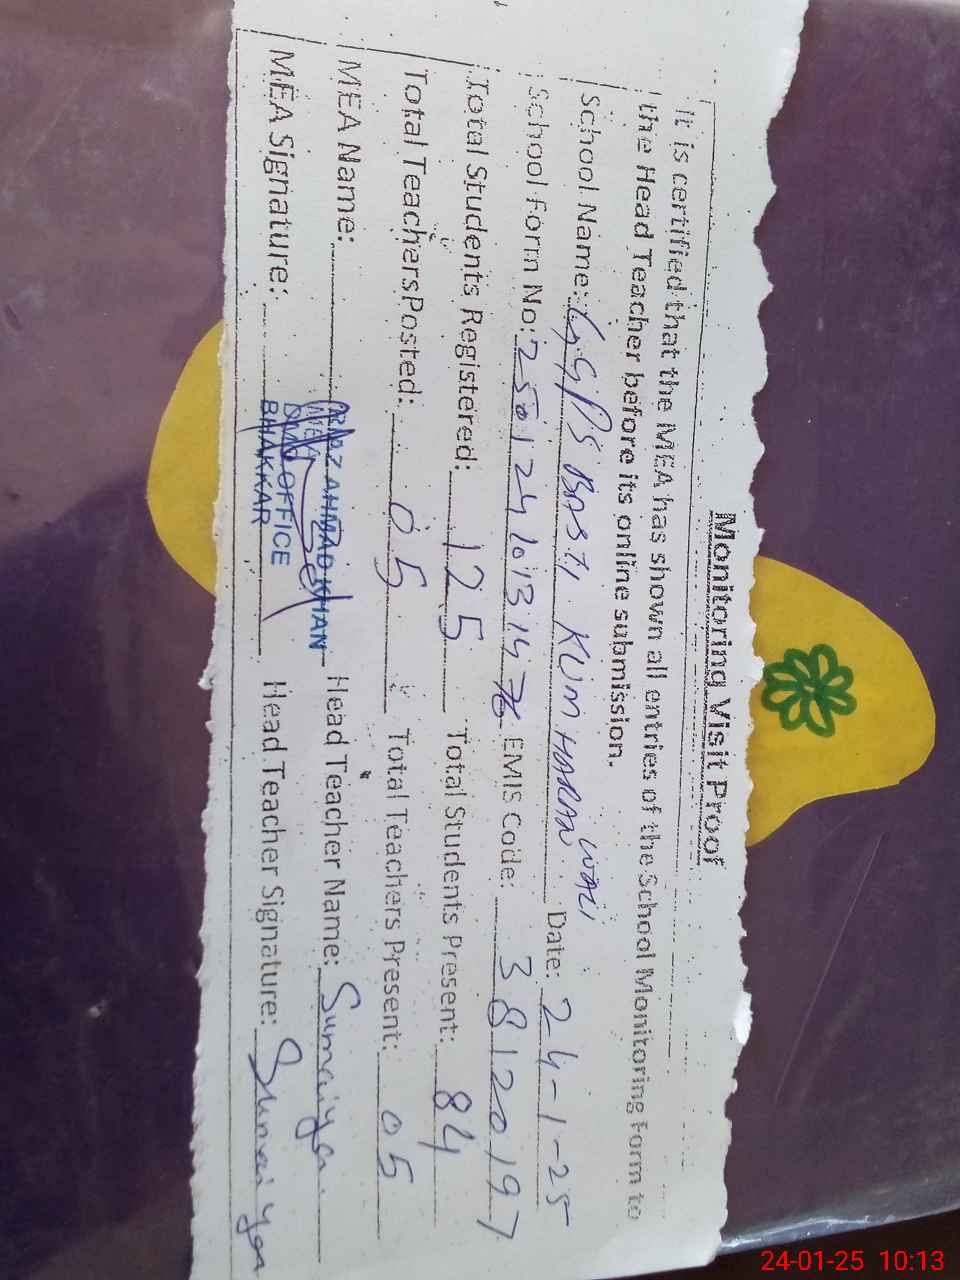 Monitoring Visit Proof
It is certified that the MEA has shown all entries of the School Monitoring Form to
the Head Teacher before its online submission.
School Name: GGPS BASTI KUMHARAN WALI Date: 24-1-25
School Form No: EMIS Code: 38120197
Total Students Registered: 125 Total Students Present: 84
Total Teachers Posted: 05 Total Teachers Present: 05
MEA Name: AHMAD KHAN Head Teacher Name: Sumaiya
MEA
DMO OFFICE
BHAKKAR
MEA Signature: Head Teacher Signature: Sumaiya
24-01-25 10:13